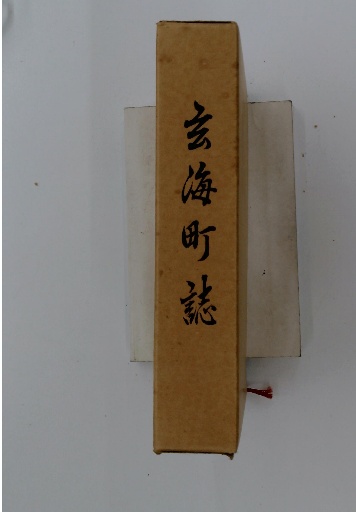 玄海町誌